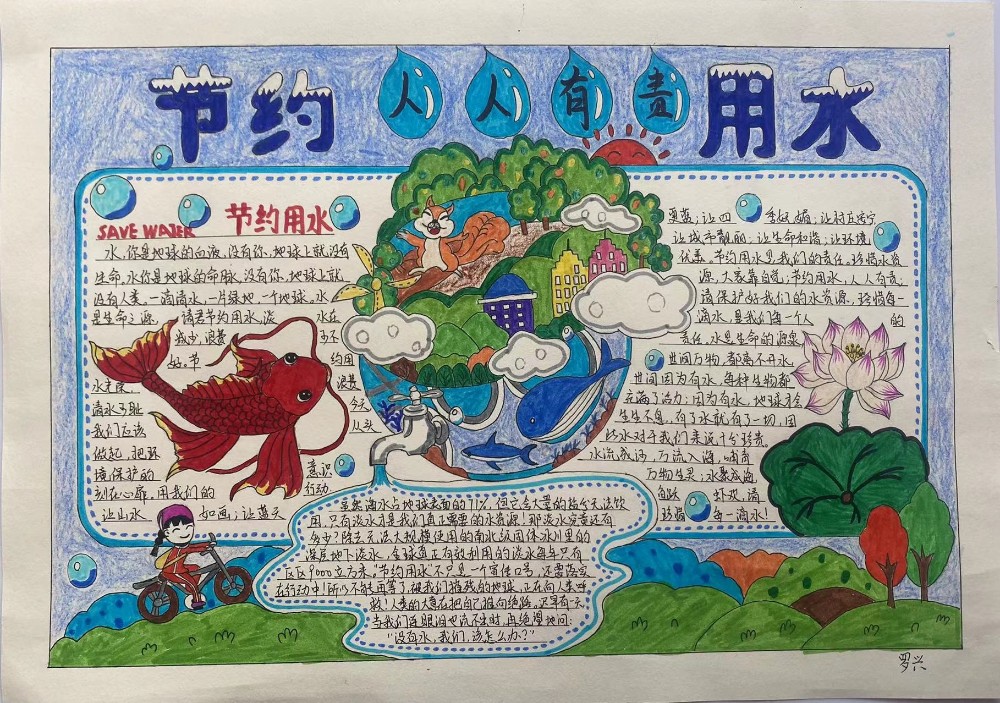 节约人人有责用水
SAVE WATER 节约用水
水,你是地球的血液,没有你,地球上就没有
生命,水你是地球的命脉,没有你,地球上就
没有人类。一滴滴水,一片绿地,一个地球。水
是生命之源, 请君节约用水,淡 水在
减少,浪费 多不
好。节 约用
水光荣, 浪费
滴水 今天
我们应该 从头
做起,把环
境保护的 意识
刻在心靡,用我们的 行动
让山水 如画;让蓝天
更蓝;让四季妩媚;让村庄
让城市靓丽;让生命和谐;让环境
优美。节约用水是我们的责任,珍惜水资
源,大家靠自觉;节约用水,人人有责;
请保护好我们的水资源,珍惜每一
滴水,是我们每一个人 的
责任,水是生命的源泉
世间万物都离不开水,
世间因为有水,每种生物都
充满了活力;因为有水,地球才会
生生不息,有了水就有了一切,因
此水对于我们来说十分珍贵。
水流成河,万流入海,哺育
万物生灵;水聚成海
鱼跃 虾欢,请
珍惜 每一滴水!
虽然海水占地球表面的71%,但它含大量的盐分无法饮
用,只有淡水才是我们真正需要的水资源!那淡水究竟还有
多少?除去无法大规模使用的南北级固体冰川里的
深层地下淡水,全球真正有效利用的淡水每年只有
区区9000立方米。"节约用水"不只是一个宣传口号,还需落实
在行动中!所以不能再等了,被我们摧残的地球,正在向人类呼
救!人类的大意在把自己推向绝路,迟早有一天,
当我们连眼泪也流不出时,再绝望地问:
"没有水,我们,该怎么办?"
罗兴